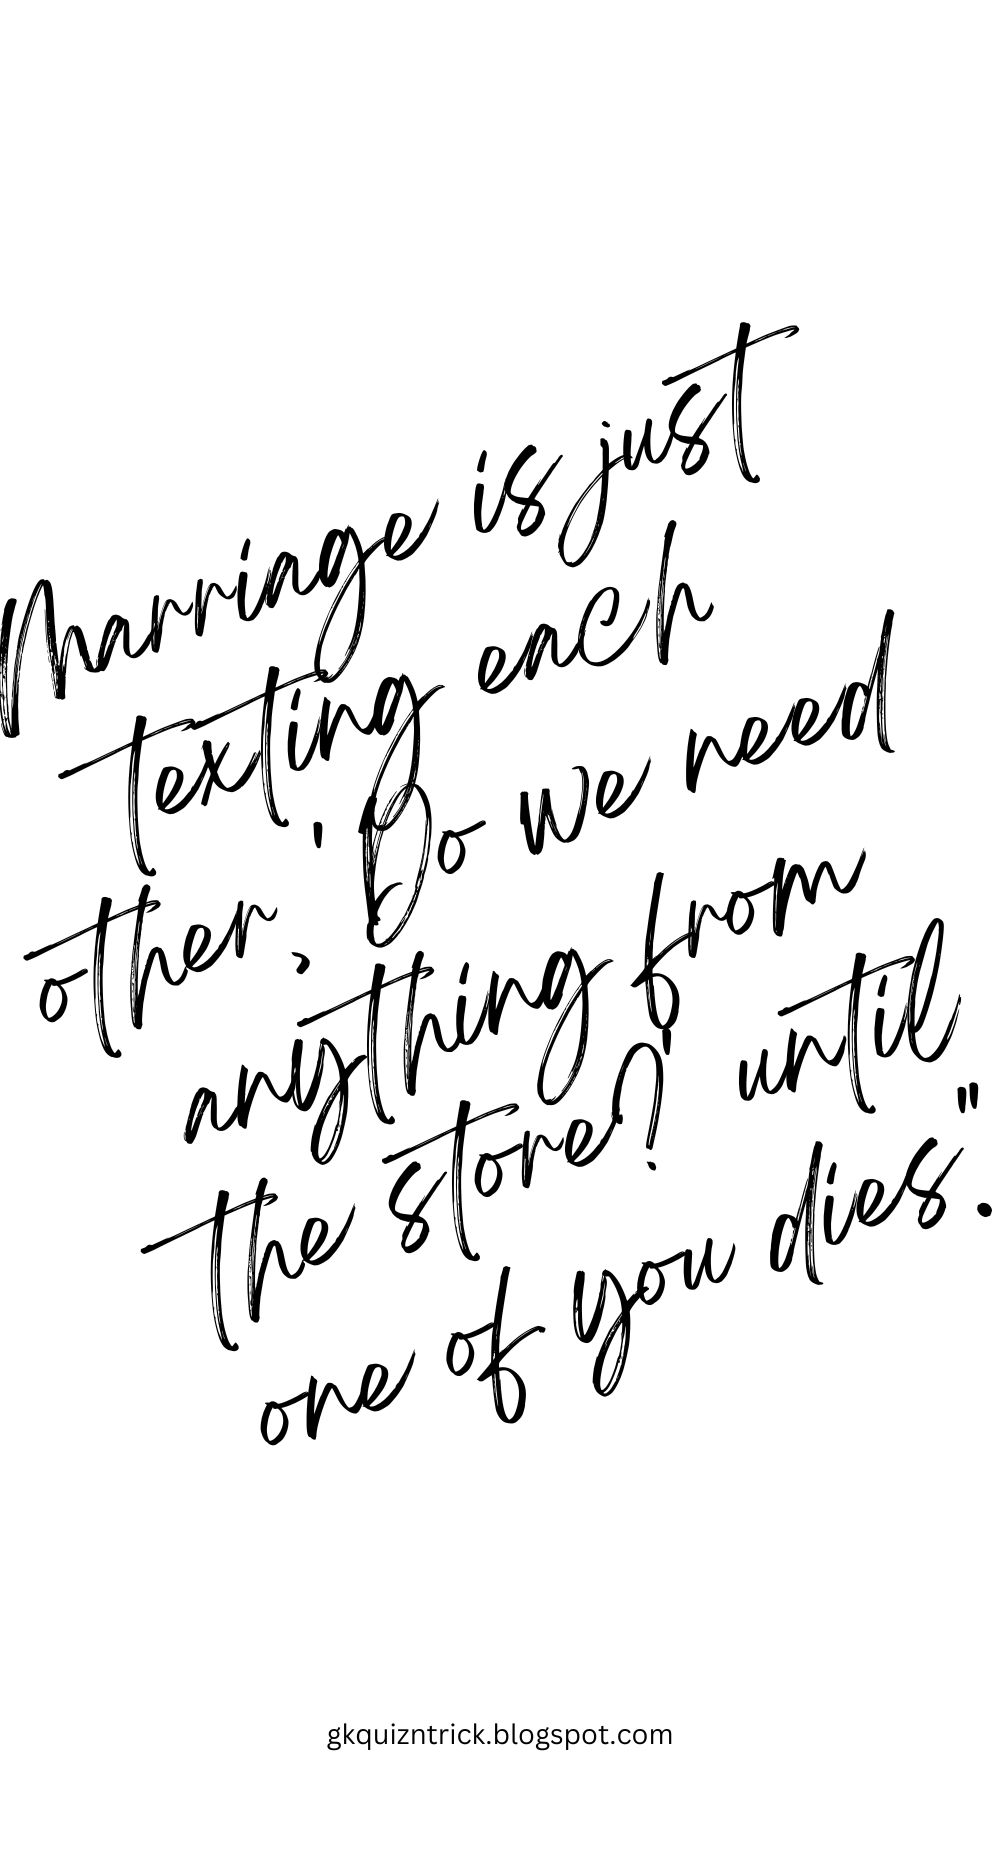 Marriage is just
texting each
other, 'Do we need
anything from
the store?' until
one of you dies".
gkquizntrick.blogspot.com